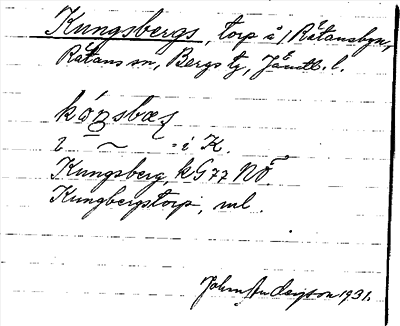 Kungsbergs, torp i Rätansbyn,
Rätans sn, Bergs tg, Jämtl. l.
i ~ = i K.
Kungsberg, kG 77 NÖ
Kungbergstorp, ml.
John Anderson 1931.